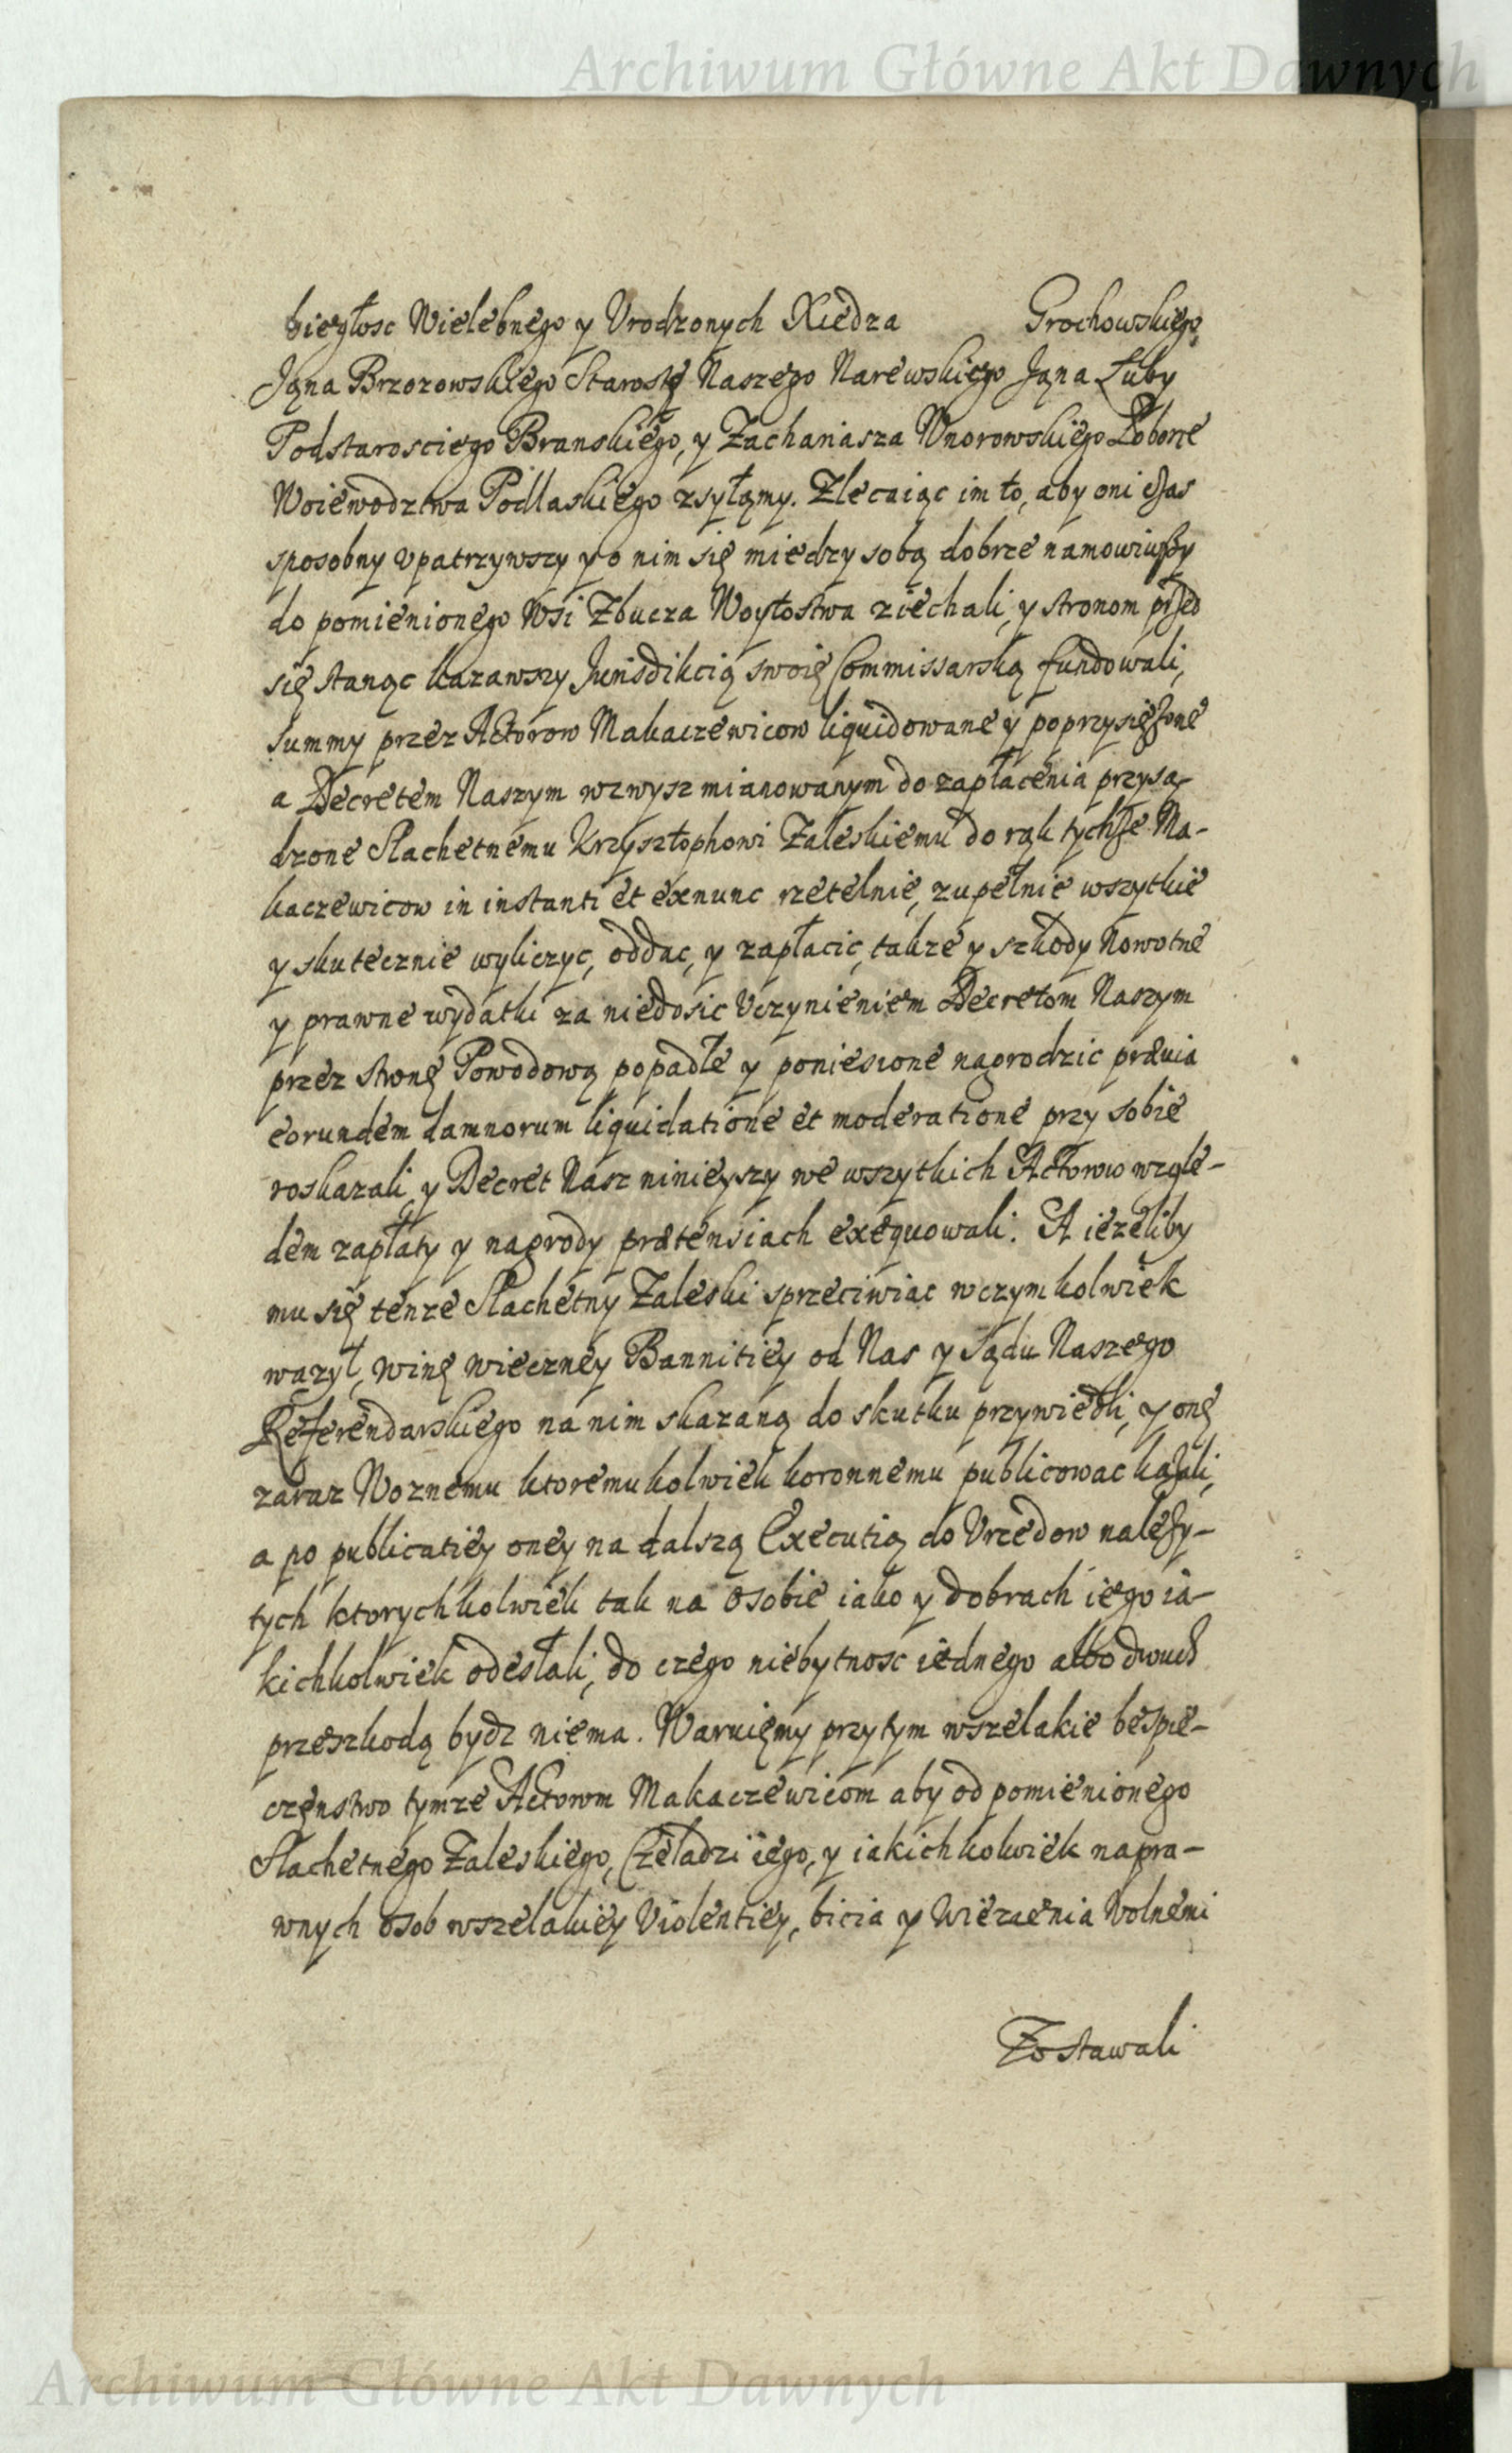 Archiwum Główne Akt Dawnych
biegłosc Wielebnego y Vrodzonych Xiedza Grochowskiego,
Jąna Brzozowskiego Starostę Naszego Narewskiego Jąna Łuby
Podstarosciego Branskiego, y Zachariasza Wnorowskiego Poborcę
Woiewodztwa Podlaskiego zsyłąmy. Zlecaiąc im to, aby oni czas
sposobny vpatrzywszy y o nim się miedzy sobą dobrze namowiwszy
do pomienionego Wsi Zbucza Woytostwa ziechali, y stronom przed
się stanąc kazawszy Jurisdikcią swoię Commissarską fundowali,
summy przez Actorow Makaczewicow liquidowane y poprzysięzone
a Decretem Naszym wzwysz mianowanym do zapłacenia przysą-
dzone Slachetnemu Krzysztophowi Zaleskiemu do rąk tychze Ma-
kaczewicow in instanti et exnunc rzetelnie, zupełnie wszytkie
y skutecznie wyliczyc, oddac, y zapłacic, takze y szkody Nowotne
y prawne wydatki za niedosic Vczynieniem Decretom Naszym
przez stronę Powodową popadłe y poniesione nagrodzic prævia
eorundem damnorum liquidatione et moderatione przy sobie
roskazali, y Decret Nasz ninieyszy we wszytkich Actorow wzglę-
dem zapłaty y nagrody prætensiach exequowali. A iezeliby
mu się tenze Slachetny Zaleski sprzeciwiac w czymkolwiek
wazył, winę wieczney Bannitiey od Nas y Sądu Naszego
Referendarskiego na nim skazaną do skutku przywiedli, y onę
zaraz Woznemu ktoremukolwiek koronnemu publicowac kazali,
a po publicatiey oney na dalszą Executią do Vrzedow nalezy-
tych ktorychkolwiek tak na osobie iako y dobrach iego ia-
kichkolwiek odesłali, do czego niebytnosc iednego albo dwuch
przeszkodą bydz niema. Waruięmy przytym wszelakie bespie-
częnstwo tymze Actorom Makaczewicom aby od pomienionego
Slachetnego Zaleskiego, Czeladzi iego, y iakichkolwiek napra-
wnych osob wszelakiey Violentiey, bicia y Więzienia Wolnemi
Zostawali
Archiwum Główne Akt Dawnych